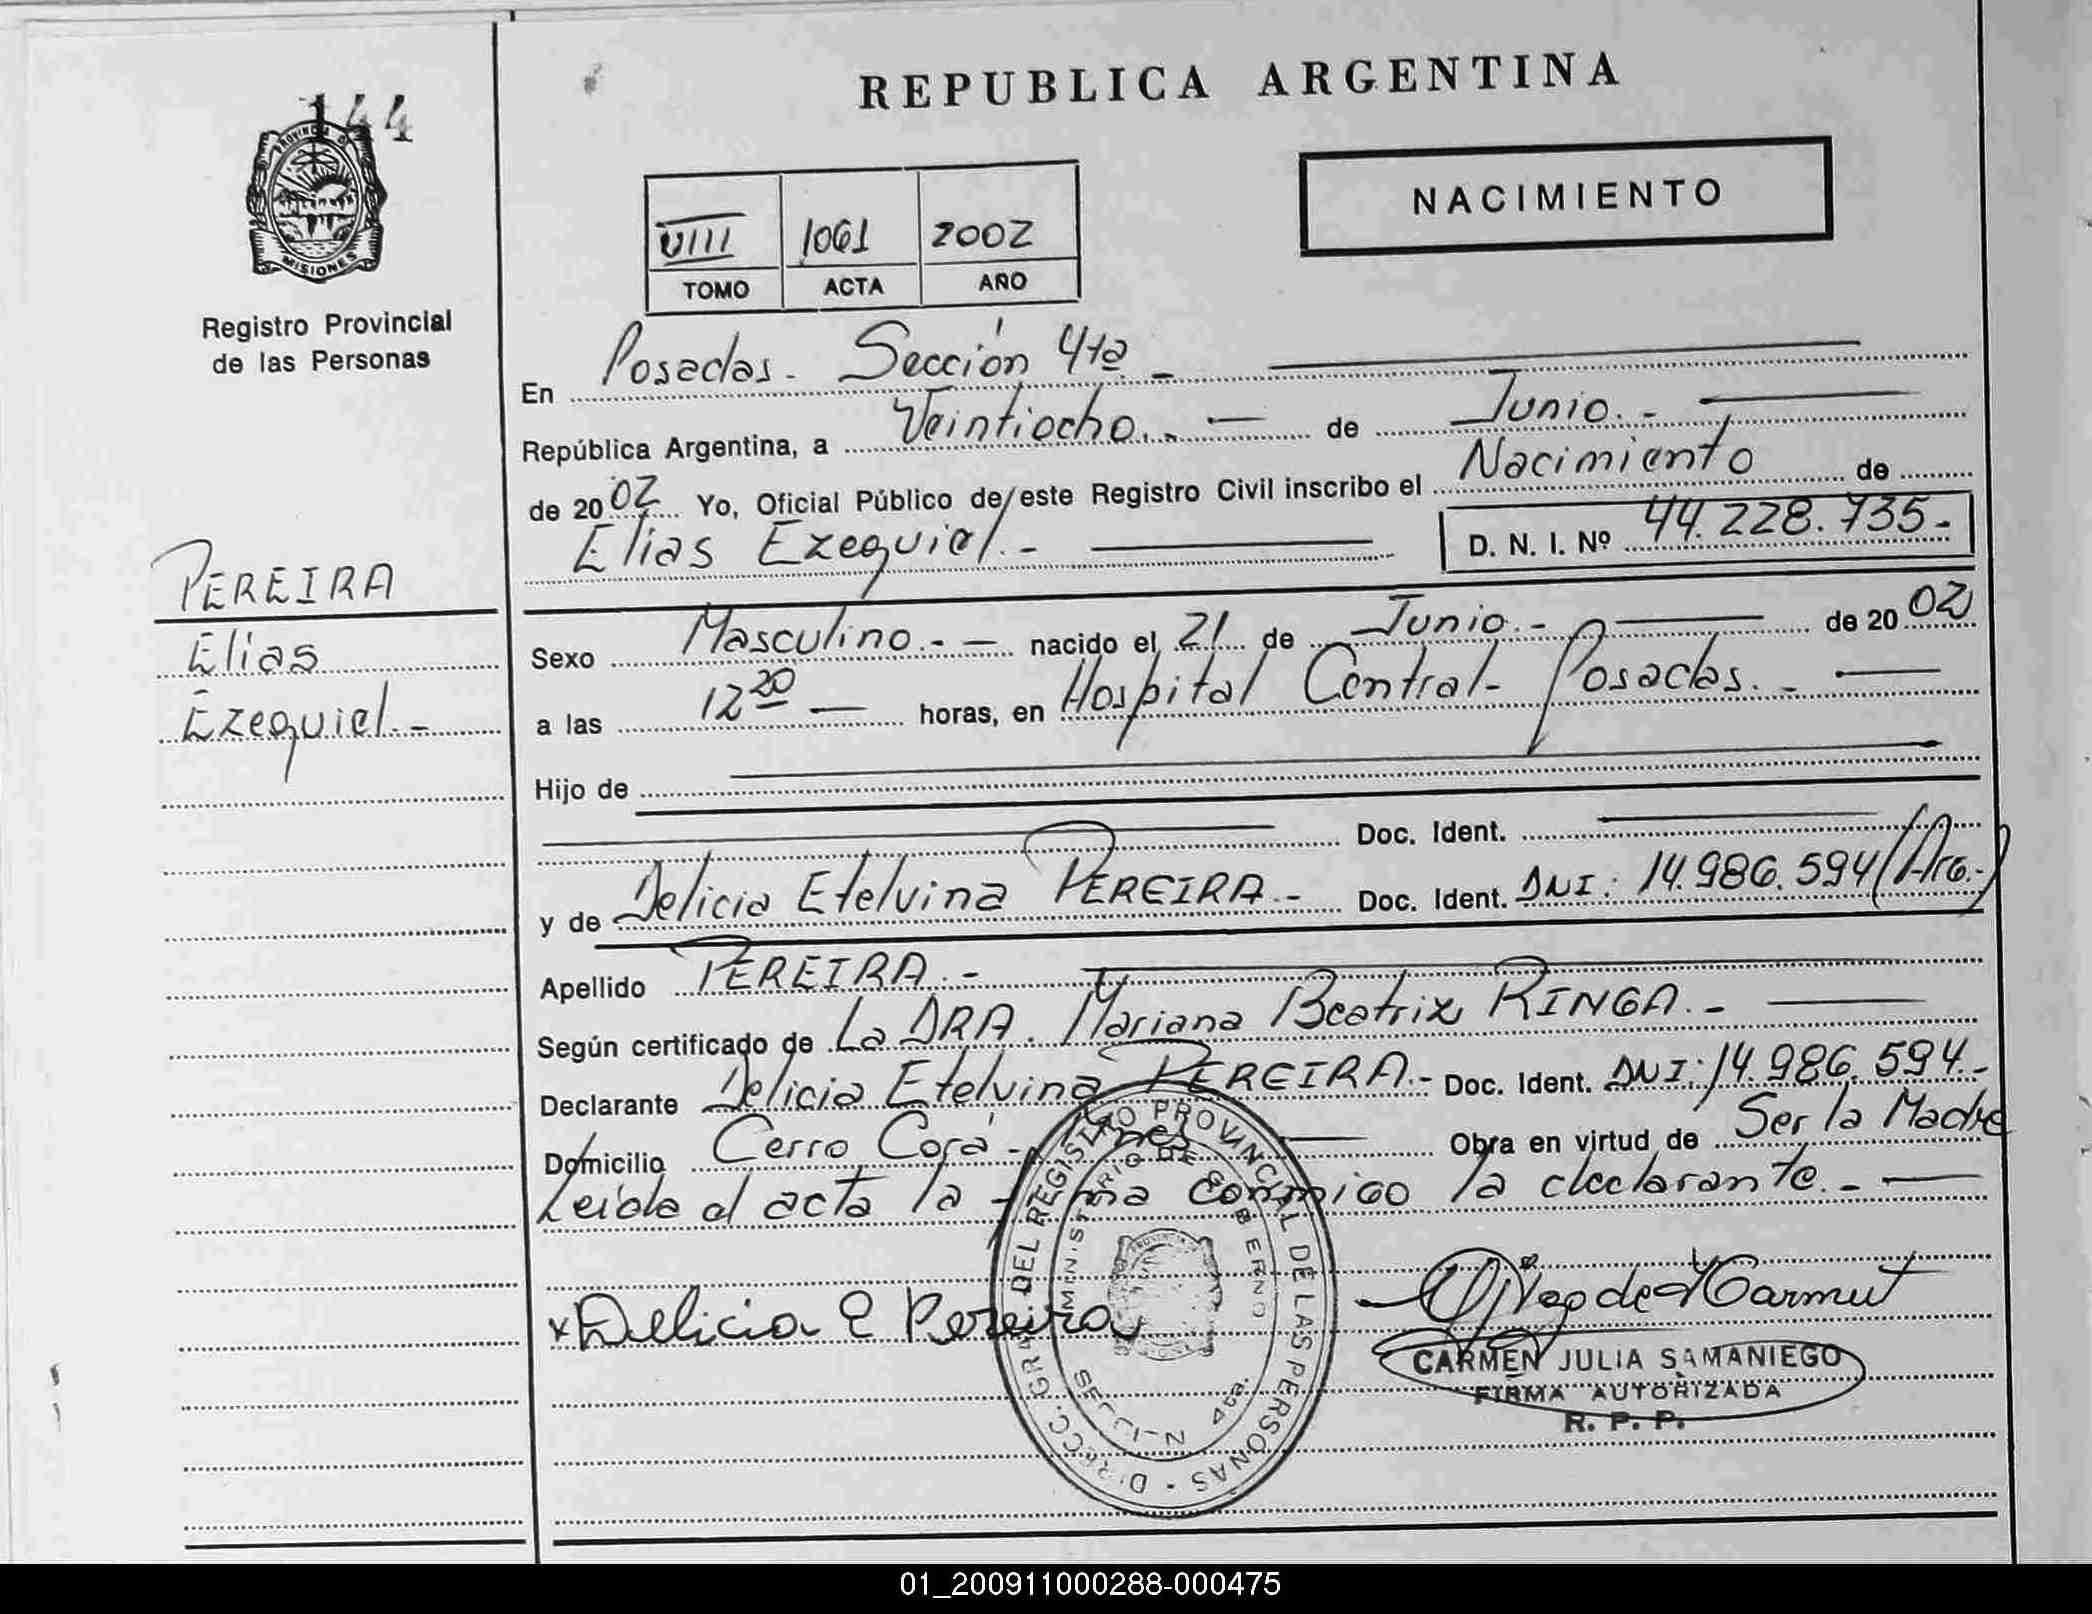 144
PROVINCIA DE
MISIONES
Registro Provincial
de las Personas
PEREIRA
Elias
Ezequiel.-
REPUBLICA ARGENTINA
NACIMIENTO
VIII 1061 2002
TOMO ACTA AÑO
En Posadas. Sección 4ta -
República Argentina, a Veintiocho.- de Junio.-
de 2002 Yo, Oficial Público de este Registro Civil inscribo el Nacimiento de
Elias Ezequiel.- D. N. I. Nº 44.228.735.-
Sexo Masculino.- nacido el 21 de Junio.- de 2002
a las 12 20 horas, en Hospital Central- Posadas.-
Hijo de
Doc. Ident.
y de Delicia Etelvina PEREIRA.- Doc. Ident. DNI: 14.986.594 (Arg.-)
Apellido PEREIRA.-
Según certificado de La DRA. Mariana Beatriz RINGA.-
Declarante Delicia Etelvina PEREIRA.- Doc. Ident. DNI: 14.986.594.-
Domicilio Cerro Corá - Obra en virtud de Ser la Madre
Leida el acta la firma conmigo la declarante.-
x Delicia E Pereira
DIRECC. GRAL DEL REGISTRO PROVINCIAL DE LAS PERSONAS
MINISTERIO DE GOBIERNO
CARMEN JULIA SAMANIEGO
FIRMA AUTORIZADA
R. P. P.
01_200911000288-000475